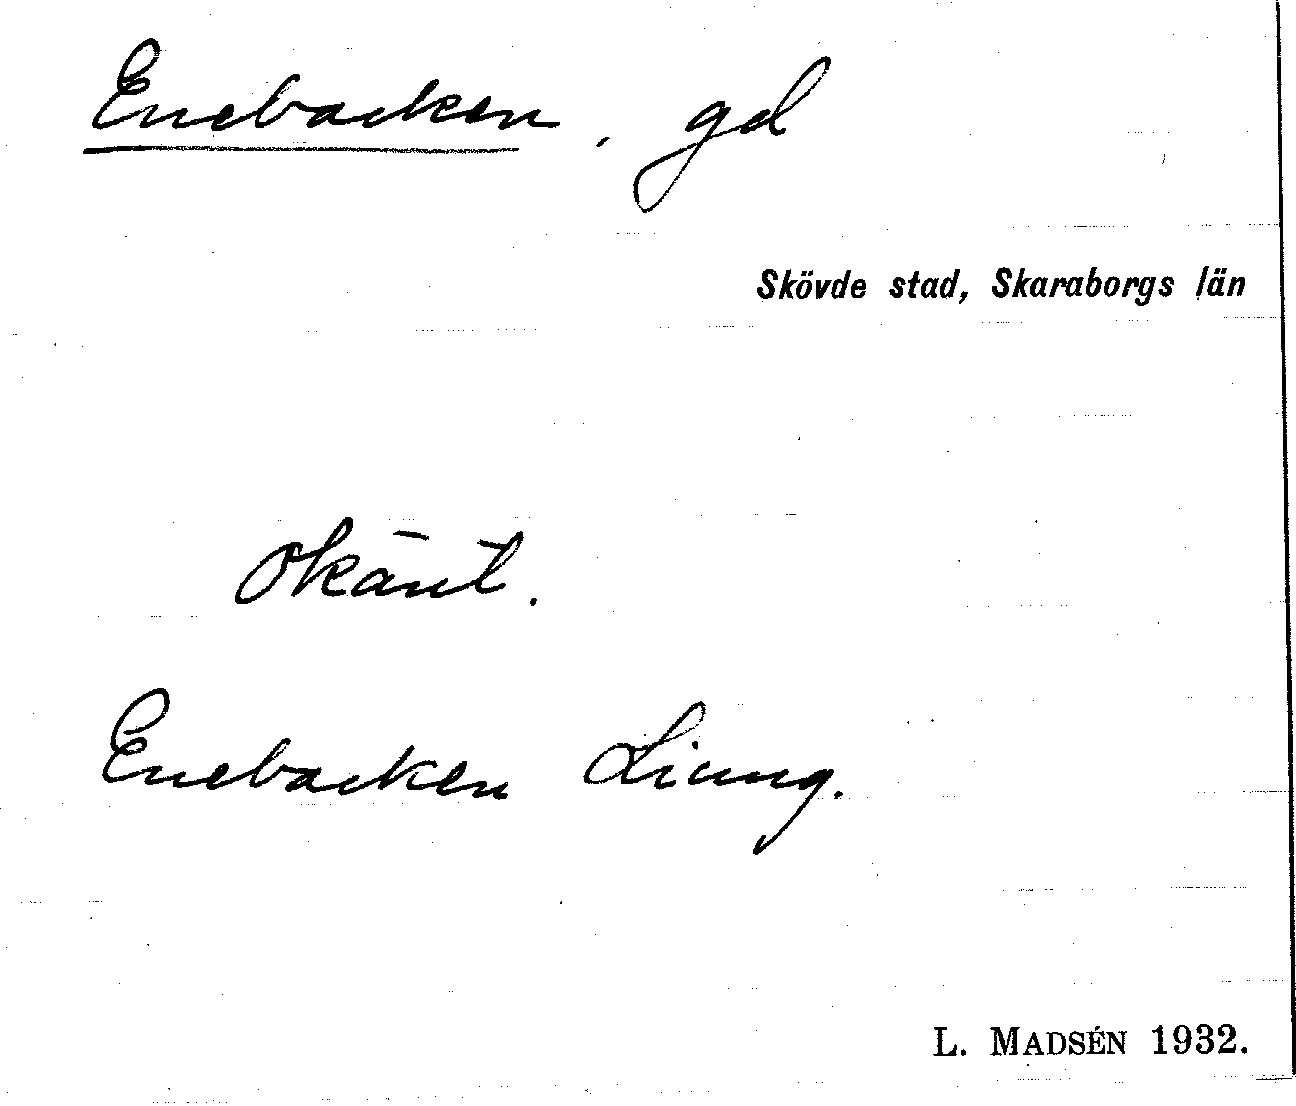 Enebacken, gd
Skövde stad, Skaraborgs län
Okänt.
Enebacken Liung.
L. MADSÉN 1932.